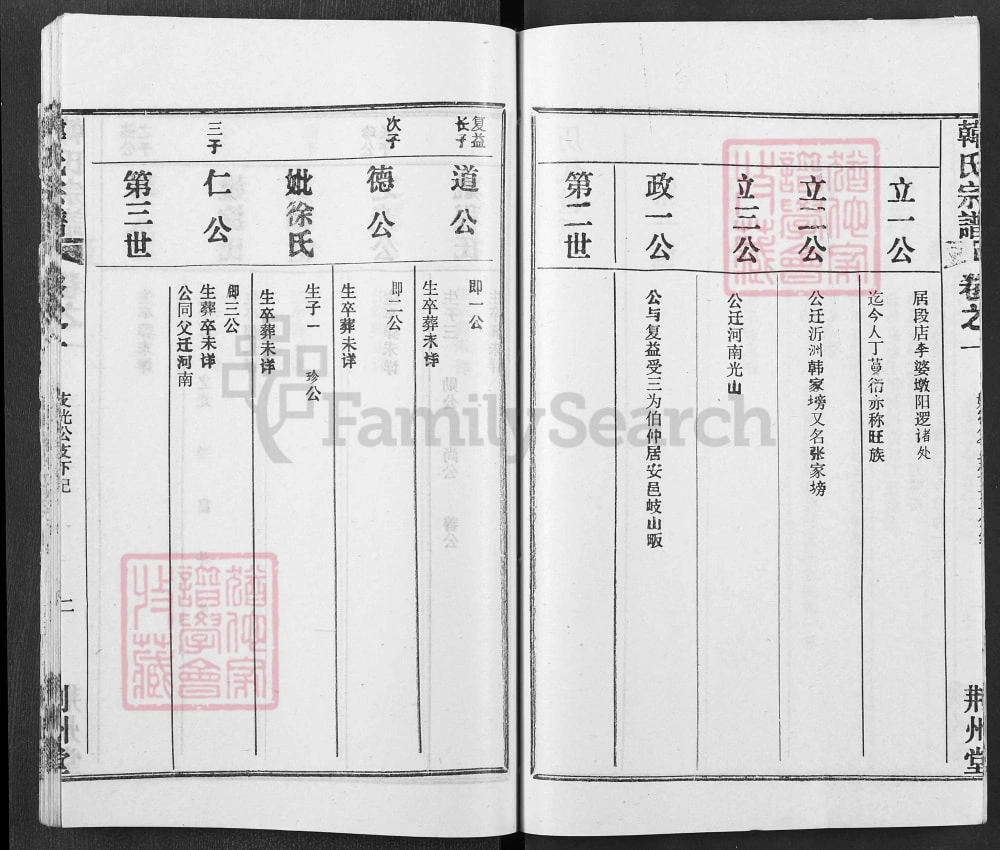 韓氏宗譜
卷之一
荆州堂
立一公
居段店李婆墩阳逻诸处
迄今人丁蔓衍亦称旺族
立二公
公迁沂洲韩家塝又名张家塝
立三公
公迁河南光山
政一公
公与复益受三为伯仲居安邑岐山畈
第二世
复益
长子
道公
即一公
生卒葬未详
次子
德公
即二公
生卒葬未详
妣徐氏
生子一 珍公
生卒葬未详
三子
仁公
即三公
生葬卒未详
公同父迁河南
第三世
二
FamilySearch